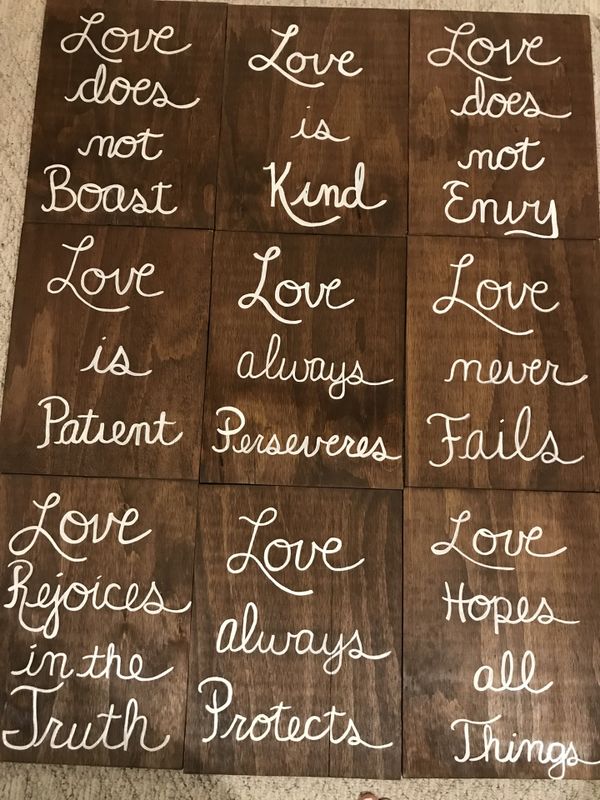 Love
does
not
Boast
Love
is
Kind
Love
does
not
Envy
Love
is
Patient
Love
always
Perseveres
Love
never
Fails
Love
Rejoices
in the
Truth
Love
always
Protects
Love
Hopes
all
Things